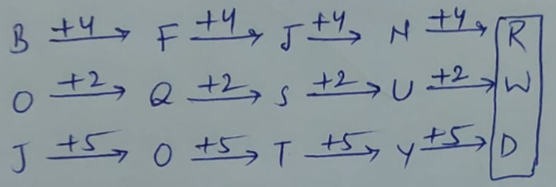 B +4 F +4 J +4 N +4 R
O +2 Q +2 S +2 U +2 W
J +5 O +5 T +5 Y +5 D